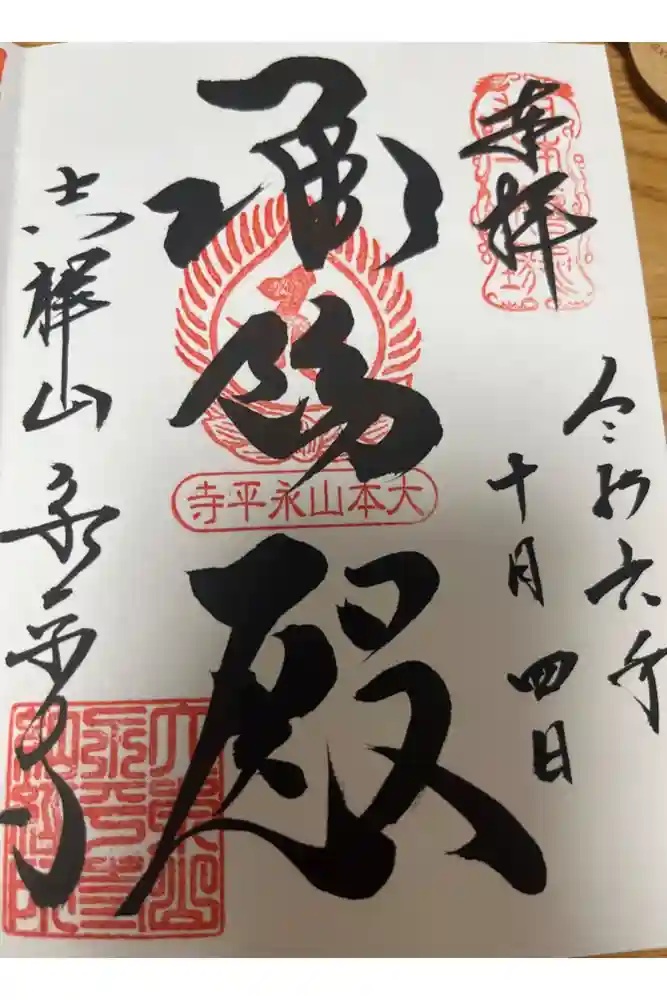 奉拝
令和六年
十月四日
承陽殿
大本山永平寺
吉祥山 永平寺